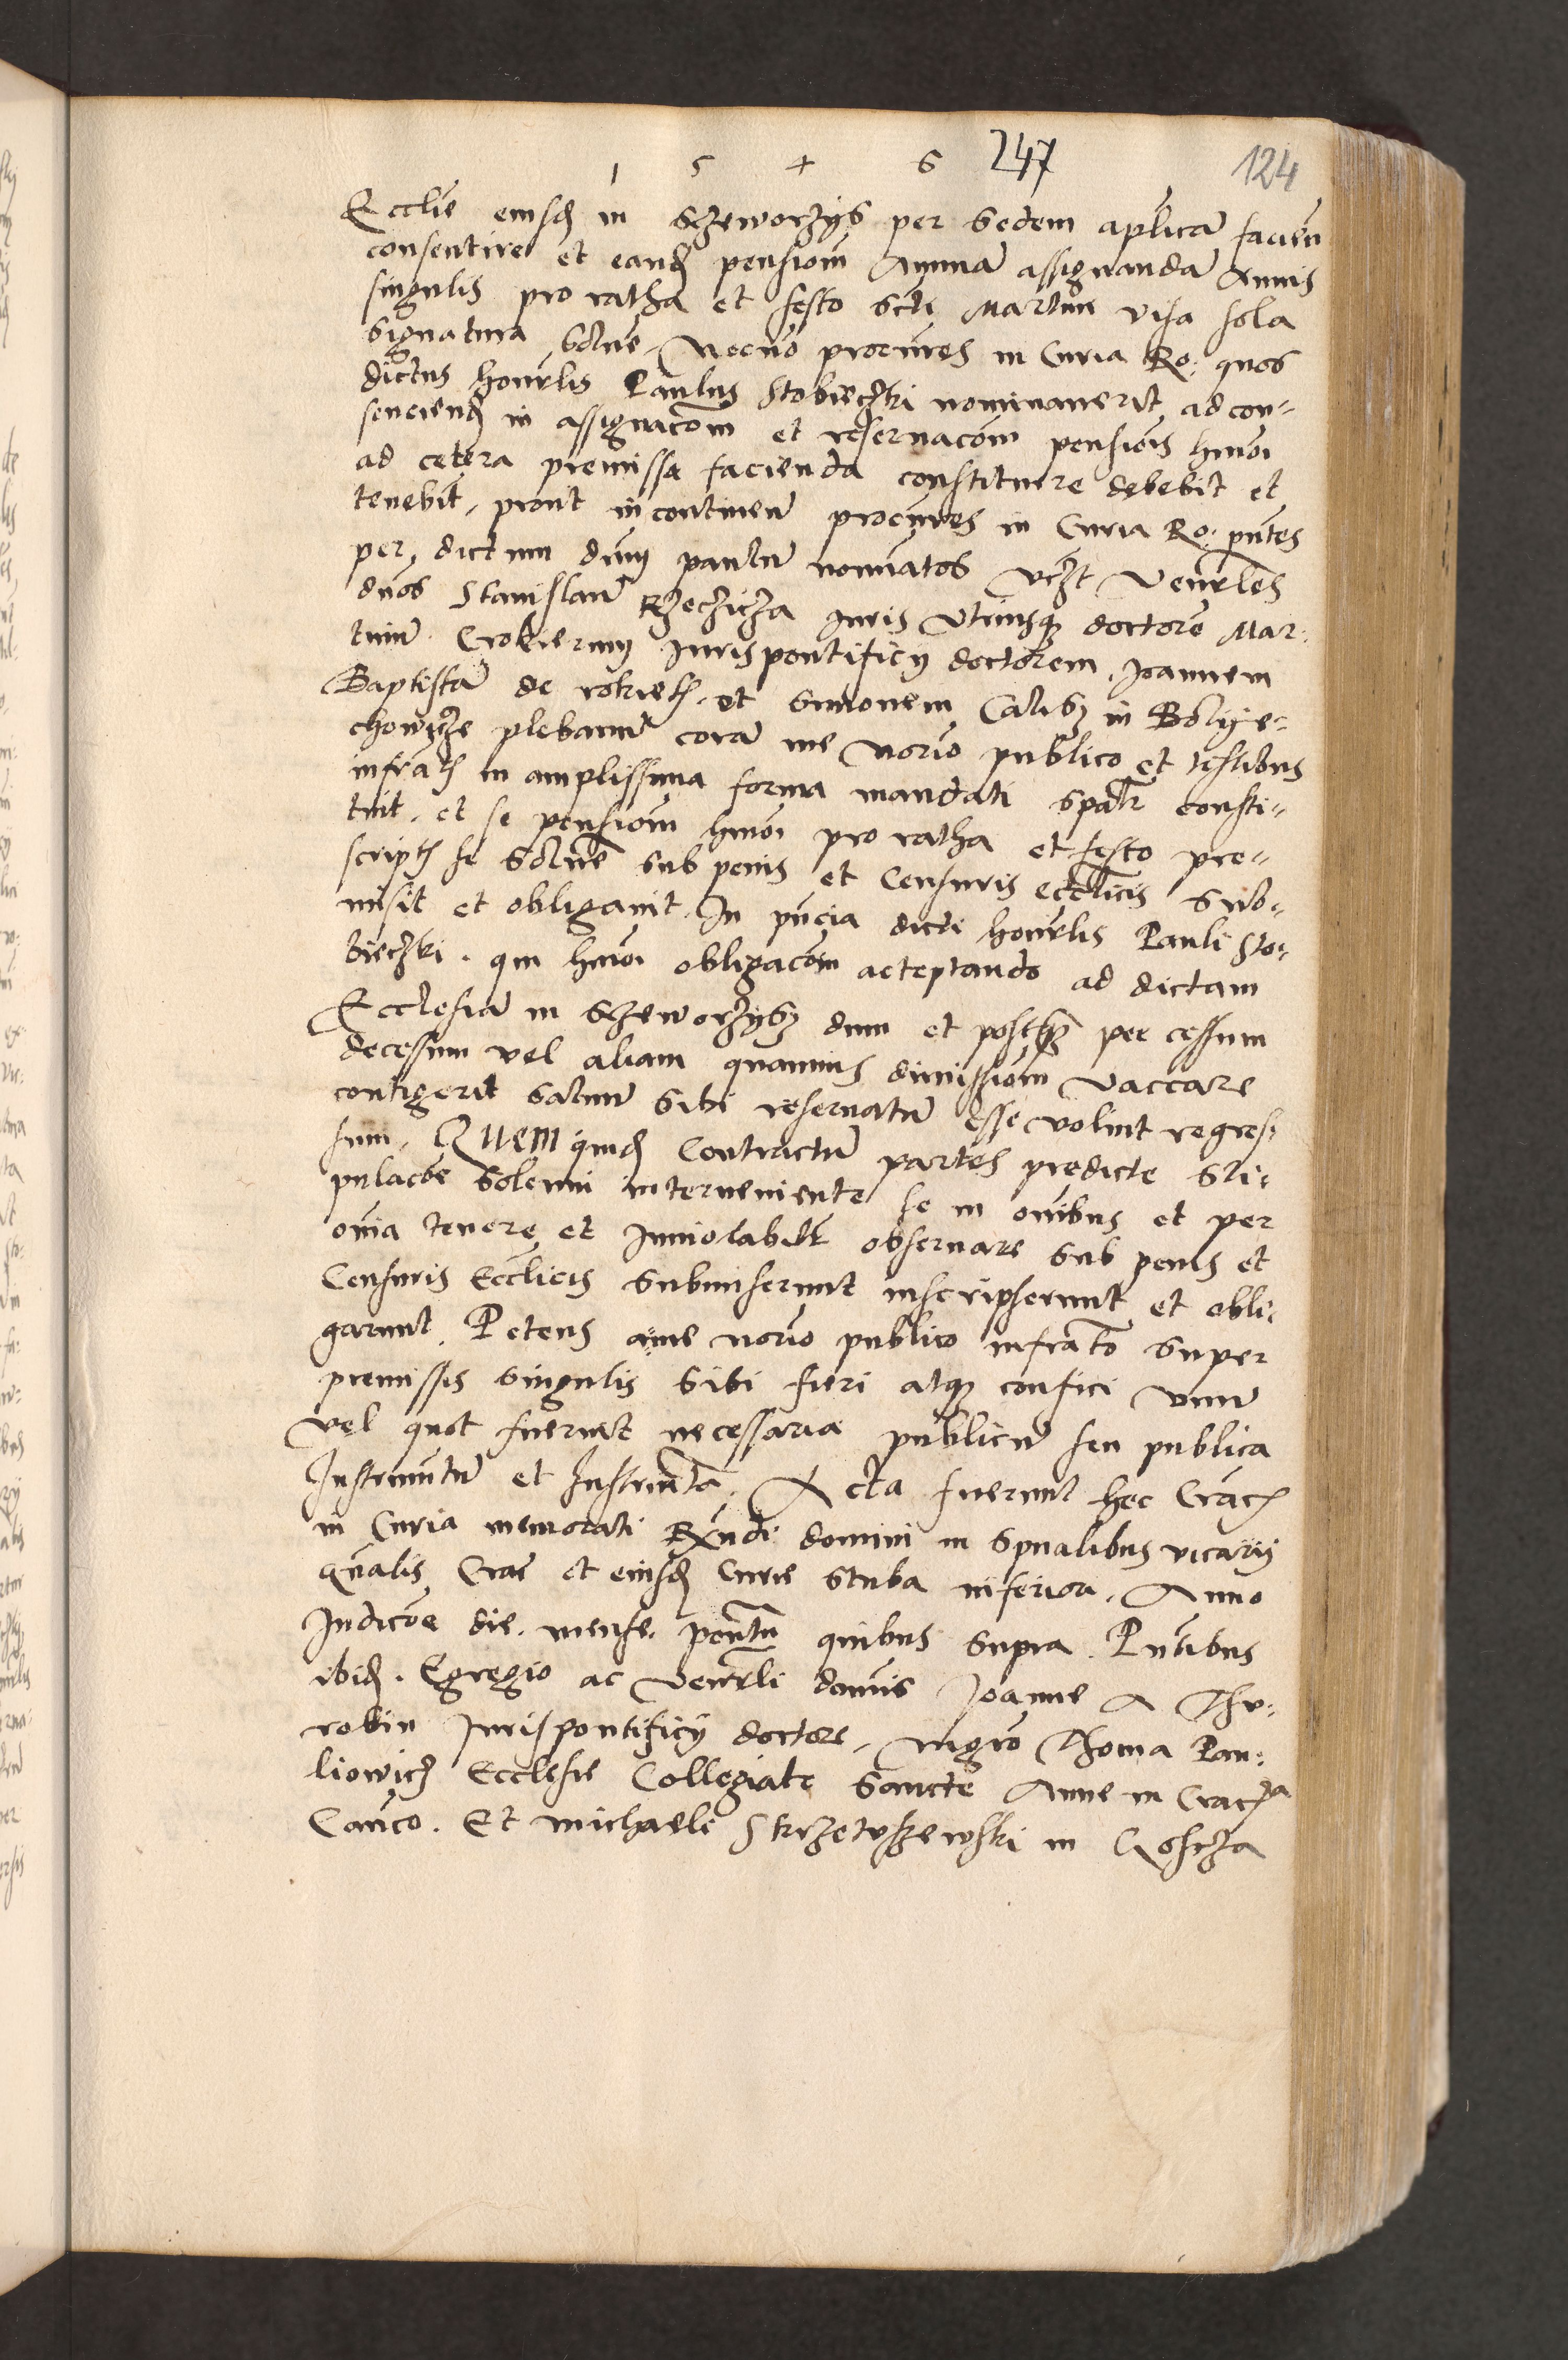 1 5 4 6 247 124
Ecclie eiusd in Sczeworzÿs per Sedem aplicā facien
consentire et eand pensiom Annuā assignandā Annis
singulis pro ratha et festo Scti Martini visa sola
Signatura solue. Necnō procures in Curia Ro: quos
dictus honrlis Paulus Stobieczki nominauerit ad con-
senciend in assignacom et reseruacom pensiois hmoi
ad cetera premissa facienda constituere debebit et
tenebit, prout incontinen procures in Curia Ro: pntes
per dictum dnm paulū nominatos vczt Venrles
dnos Stanislaū Rzeczicza Iuris Vtriusq doctorē Mar-
tinū Crokier my Iurispontificy doctorem, Joannem
Baptistā de rokieth. et Simonem Calisz in Bolije-
chowicze plebanū corā me Norio publico et testibus
infrath in amplissima forma mandati Spālr consti-
tuit, et se pensiom hmoi pro ratha et festo pre-
script se Soluē sub penis et Censuris ecclicis Subo-
misit et obligauit. In pncia dicti honrlis Pauli Sto-
bieczki. qui hmoi obligacom acceptando ad dictam
Ecclesiā in Sczeworzysz dum et postqz per cessum
decessum vel aliam quamuis dimissiom vaccare
contigerit saluū sibi reseruatū esse voluit regres-
sum. Quem quid Contractū partes predicte Sti-
pulacōe Solenni interueniente se in oībus et per
oīa tenere et Inuiolabilr obseruare sub penis et
Censuris Ecclicis submiserunt inscripserunt et obli-
garunt. Petens a me norio publico infrato super
premissis singulis sibi fieri atqz confici vnū
vel quot fuerint necessaria publicū seu publica
Instrumtū et Instrumta. Acta fuerunt hec Crac
in Curia memorati Rxndi domini in Spualibus vicarij
gnalis Crac et eiusd Curie Stuba inferiori, Anno
Indicōe die. mense. pontū quibus supra. Pntibus
ibid. Egregio ac Venrli domīs Joanne A Thu-
robin Jurispontificij doctore, mgro Thoma Pau-
liowicz Ecclesie Collegiate Sancte Anne in Crac
Canco. Et michaele Strzetuszewski in Coscza